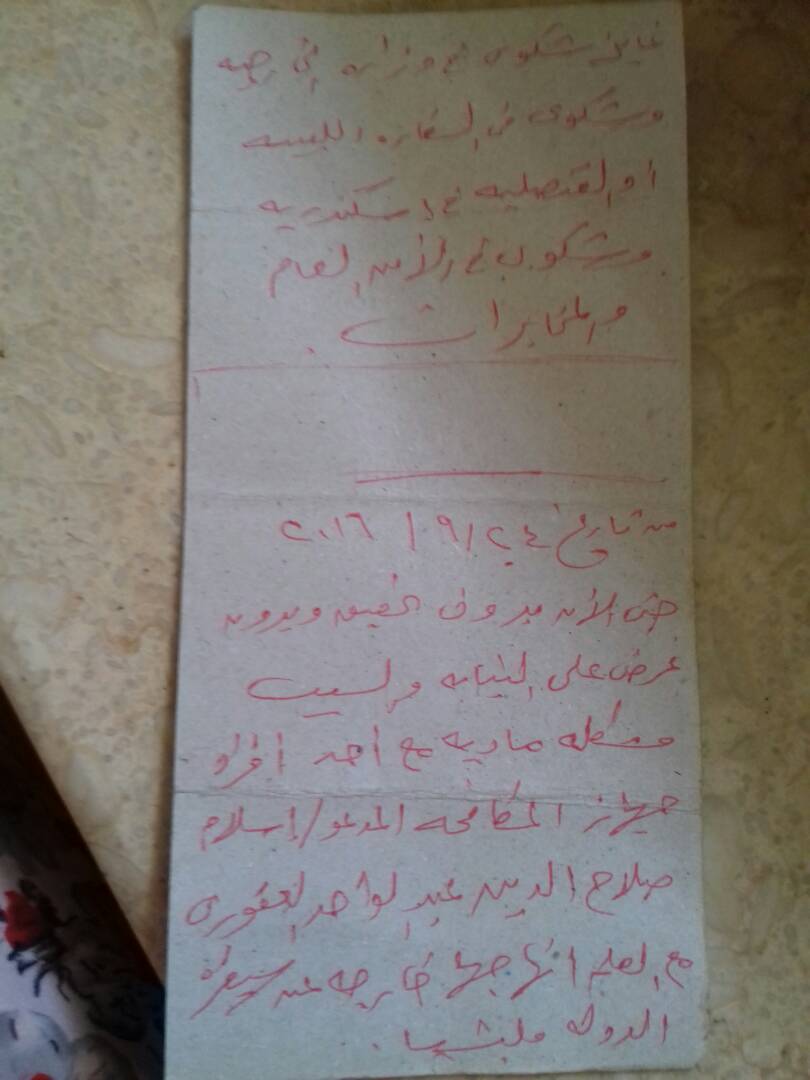 عايز شكوى في وزاره الخارجيه
وشكوى في السفاره الليبيه
او القنصليه في اسكندريه
وشكوى في الأمن العام
والمخابرات.
من تاريخ ٢٤ / ٩ / ٢٠١٦
حتى الأن بدون تحقيق وبدون
عرض على النيابه والسبب
مشكله ماديه مع احد افراد
جهاز المكافحه المدعو / إسلام
صلاح الدين عبد الواحد العقورى
مع العلم انها جهه خارجه عن سيطرة
الدوله مليشيا.